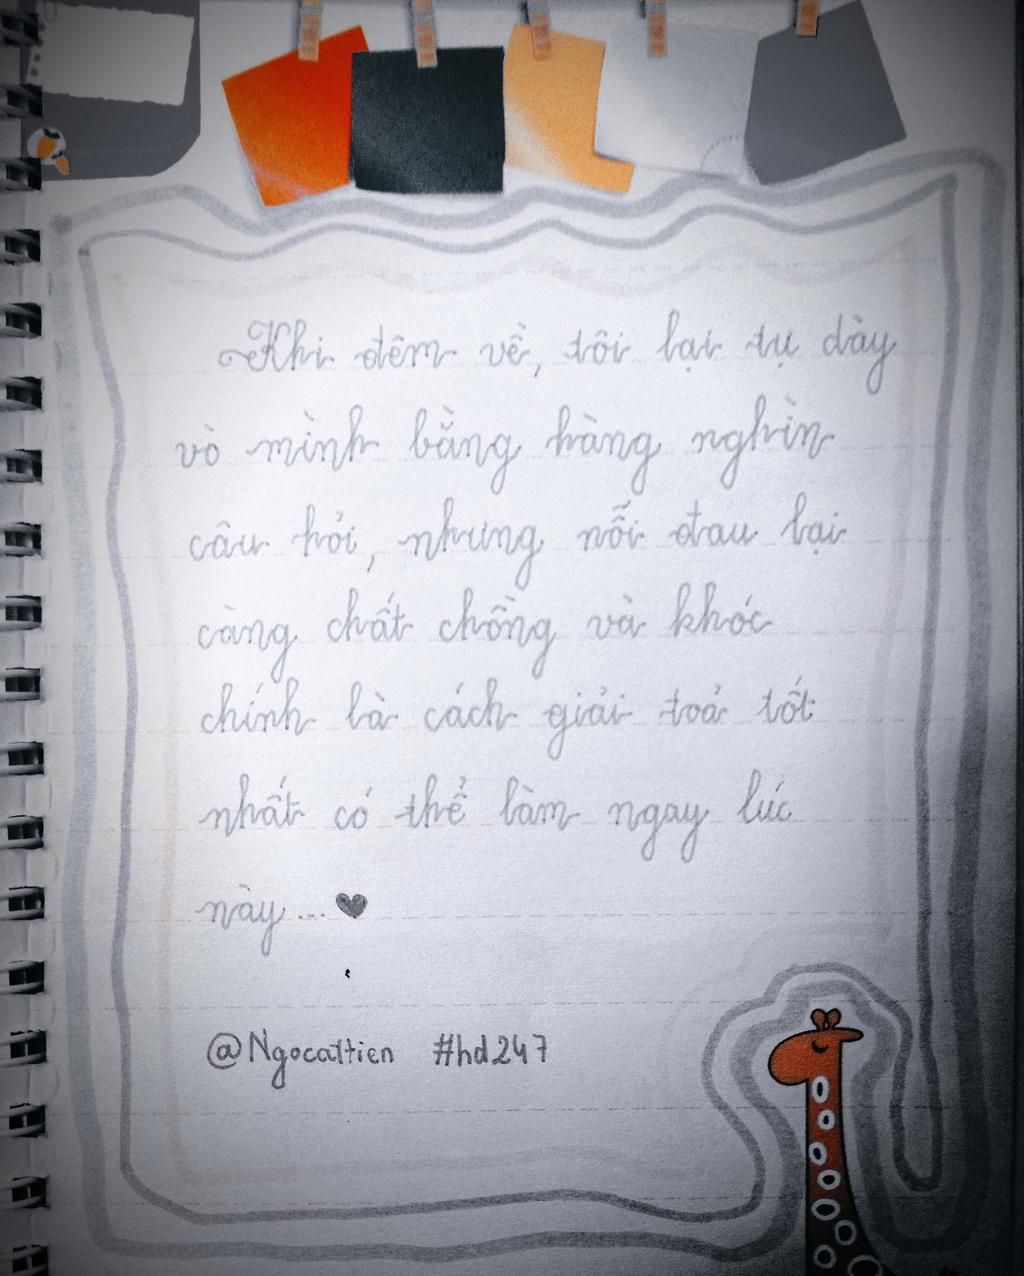 Khi đêm về, tôi lại tự dày
vò mình bằng hàng nghìn
câu hỏi, nhưng nỗi đau lại
càng chất chồng và khóc
chính là cách giải toả tốt
nhất có thể làm ngay lúc
này... ♥
@Ngocattien #hd247